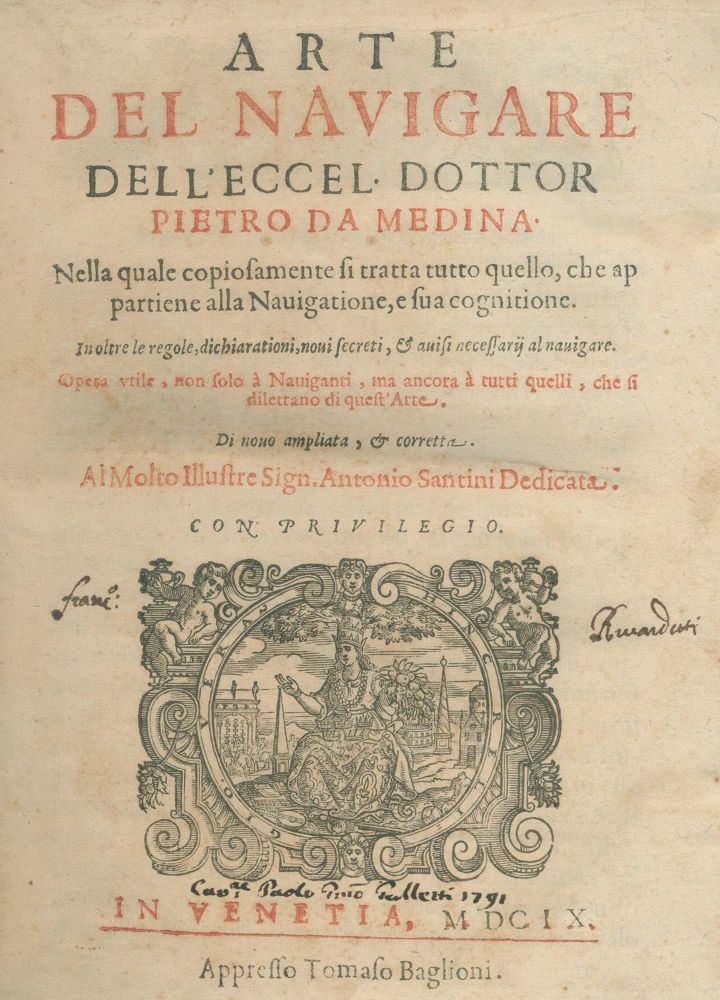 ARTE
DEL NAVIGARE
DELL'ECCEL. DOTTOR
PIETRO DA MEDINA.
Nella quale copioſamente ſi tratta tutto quello, che ap
partiene alla Nauigatione, e ſua cognitione.
Inoltre le regole, dichiarationi, noui ſecreti, & auiſi neceſſarij al nauigare.
Opera vtile, non ſolo à Nauiganti, ma ancora à tutti quelli, che ſi
dilettano di queſt'Arte.
Di nouo ampliata, & corretta.
Al Molto Illuſtre Sign. Antonio Santini Dedicata.
CON PRIVILEGIO.
franc.º:
HINC RELIGIO VERA
Cav.re Paolo Galletti 1791
IN VENETIA, MDCIX.
Appreſſo Tomaſo Baglioni.